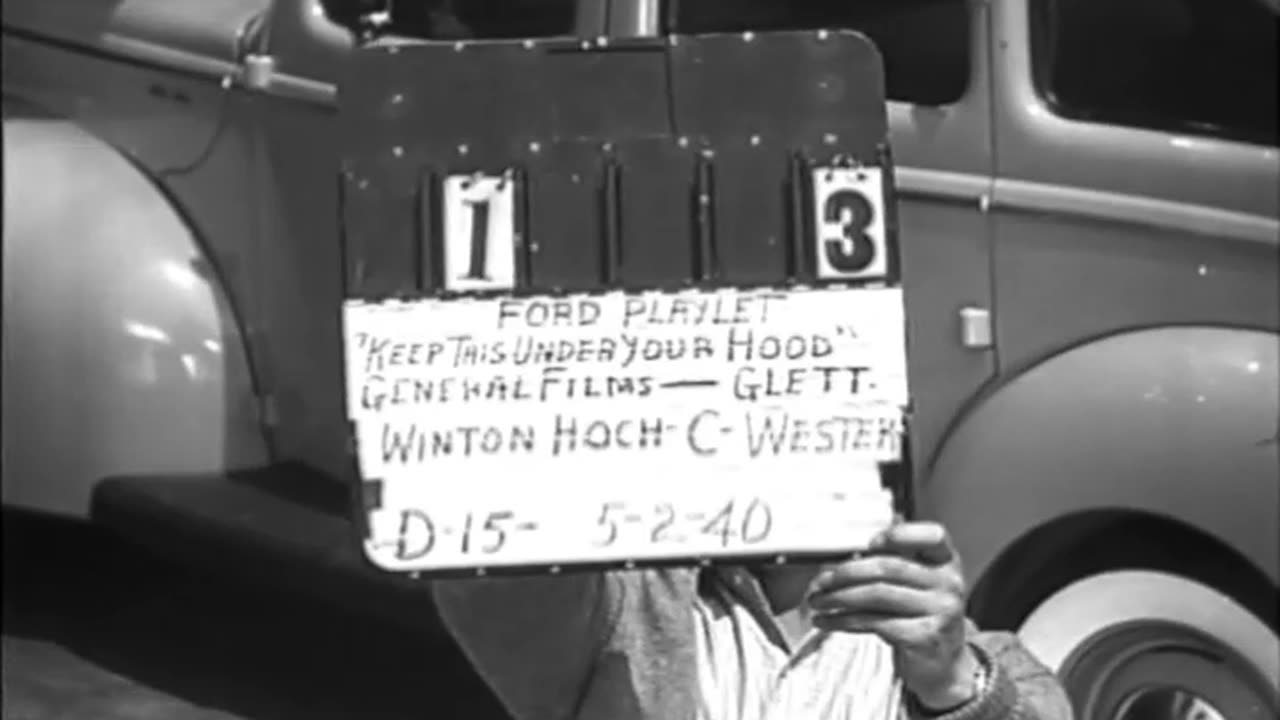 1 3
FORD PLAYLET
"KEEP THIS UNDER YOUR HOOD"
GENERAL FILMS — GLETT.
WINTON HOCH - C - WESTER
D-15- 5-2-40